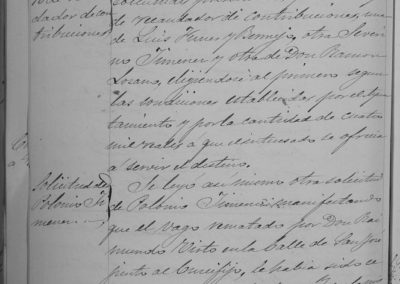 dador de con
tribuciones
de recaudador de contribuciones, una
de Luis Funes y Bermejo, otra Severi
no Jimenez y otra de Don Ramon
Lozano, eligiendose al primero segun
las condiciones establecidas por el Ayun
tamiento y por la cantidad de cuatro
mil reales á que el interesado se ofrecia
a servir el destino.
Solicitud de
Polonio Ji
menez
Se leyó asi mismo otra solicitud
de Polonio Jimenez manifestando
que el vago rematado por Don Rai
mundo Visto en la Calle de San José
junto al Crucifijo, le habia sido ce